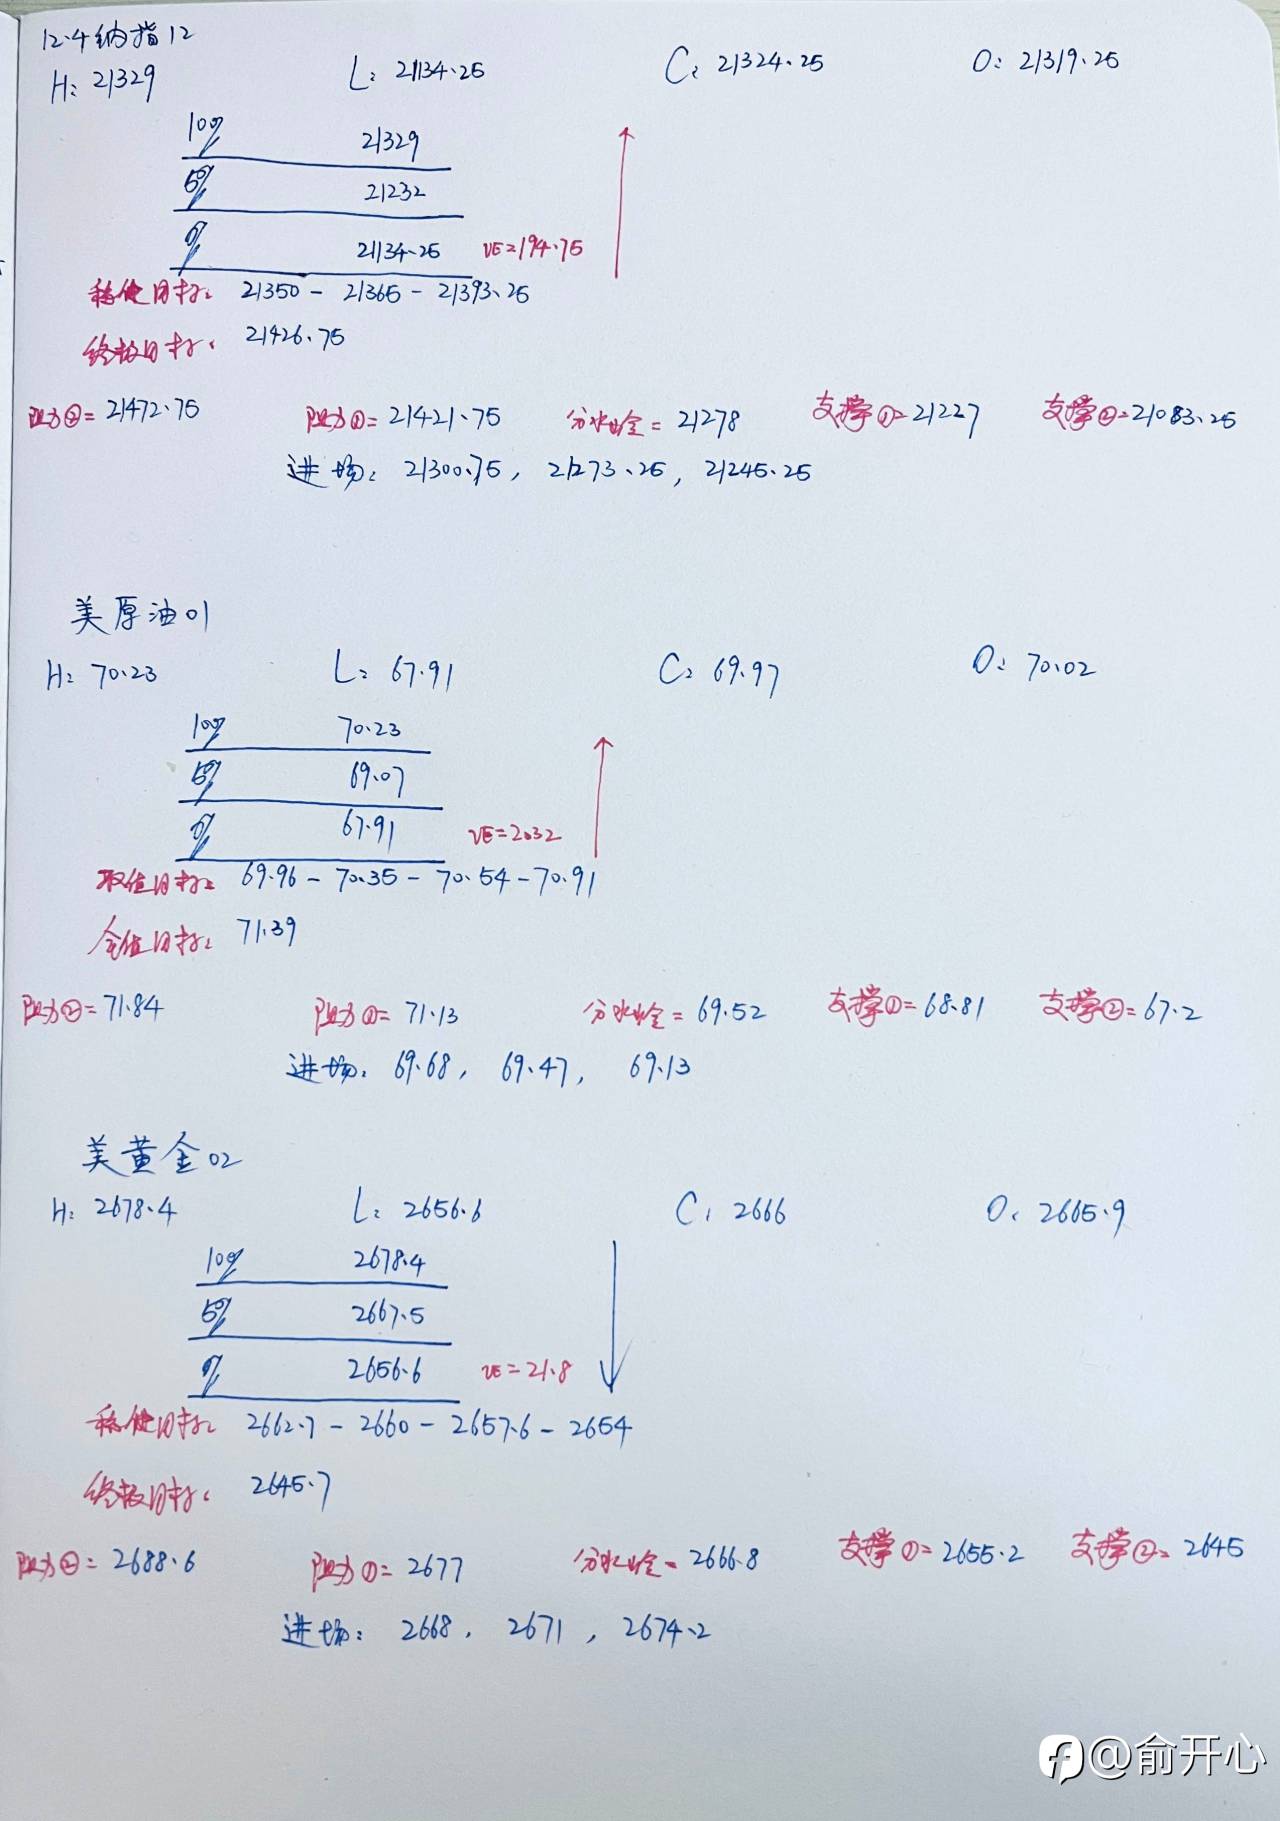 12.4纳指12
H: 21329 L: 21134.25 C: 21324.25 O: 21319.25
100% 21329
50% 21232
0% 21134.25 VE=194.75
稳健目标: 21350 - 21365 - 21393.25
终极目标: 21426.75
阻力②=21472.75 阻力①=21421.75 分水岭=21278 支撑①=21227 支撑②=21083.25
进场: 21300.75, 21273.25, 21245.25
美原油01
H: 70.23 L: 67.91 C: 69.97 O: 70.02
100% 70.23
50% 69.07
0% 67.91 VE=2.32
取值目标: 69.96 - 70.35 - 70.54 - 70.91
全值目标: 71.39
阻力②=71.84 阻力①=71.13 分水岭=69.52 支撑①=68.81 支撑②=67.2
进场: 69.68, 69.47, 69.13
美黄金02
H: 2678.4 L: 2656.6 C: 2666 O: 2665.9
100% 2678.4
50% 2667.5
0% 2656.6 VE=21.8
稳健目标: 2662.7 - 2660 - 2657.6 - 2654
终极目标: 2645.7
阻力②=2688.6 阻力①=2677 分水岭=2666.8 支撑①=2655.2 支撑②=2645
进场: 2668, 2671, 2674.2
@俞开心